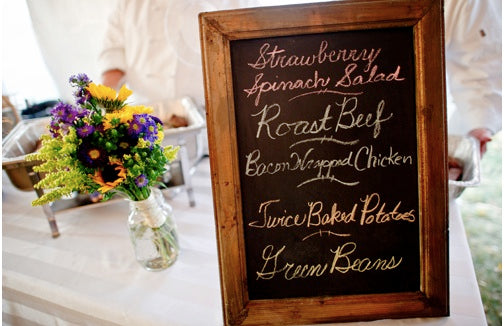 Strawberry
Spinach Salad
Roast Beef
Bacon Wrapped Chicken
Twice Baked Potatoes
Green Beans